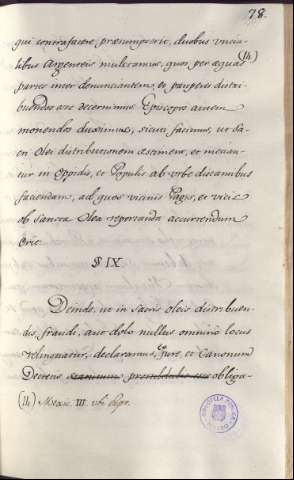 78.
qui contrafacere præsumpserit, duobus uncia-
libus Argenteis mulctamus, quos per æquas (14)
partes inter denunciantem, et pauperes distri-
buendos ore decernimus Episcopos autem
monendos duximus, sicuti facimus, ut sa-
cri Olei distributionem æstiment, et
tur in Oppidis, et Populis ab urbe distantibus
faciendam, ad quos vicinis Pagis, et Vicis
ob sancta Olea reportanda accurrendum
erit.
§ IX.
Deinde, ut in Sacris oleis distribuen-
dis, fraudi, aut dolo nullus omnino locus
relinquatur, declaramus, eo Jure, et Canonum
Decreto obliga-
(14) Mexic. III. ubi supr.